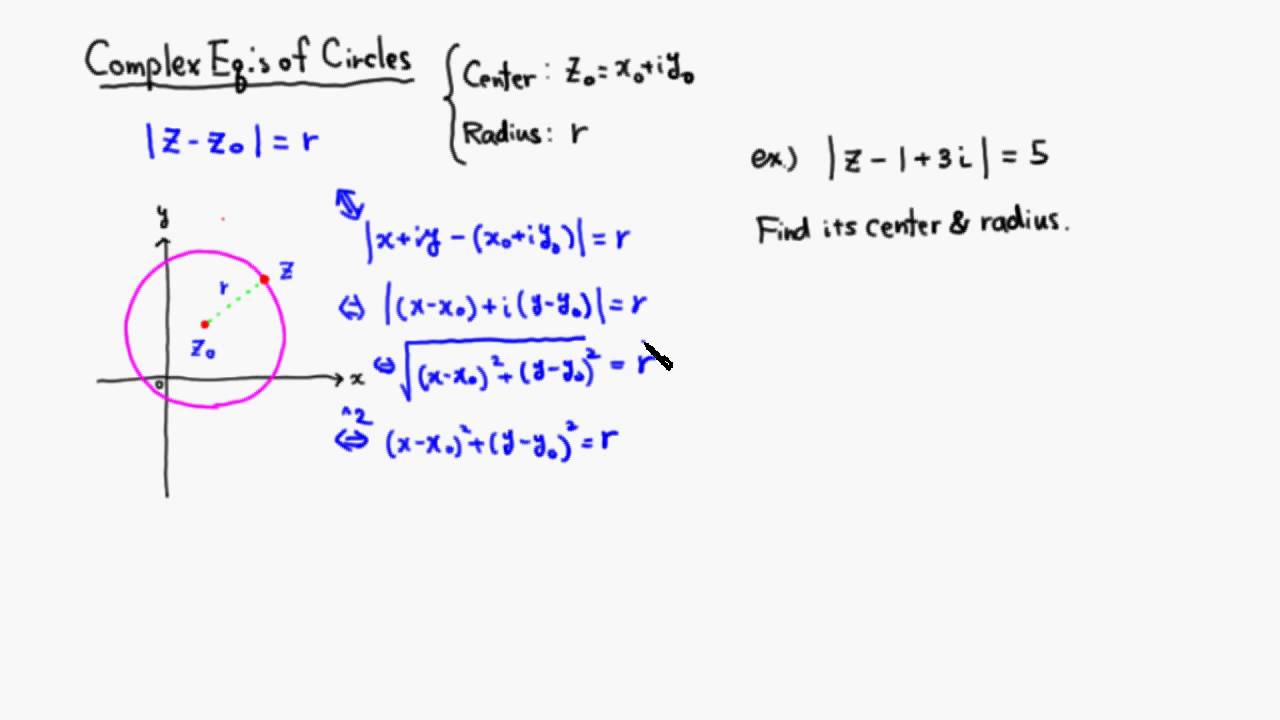 Complex Eq.'s of Circles
Center : z₀ = x₀ + iy₀
Radius : r
|z - z₀| = r
ex.) |z - 1 + 3i| = 5
Find its center & radius.
y
z
r
z₀
0
x
⇔ |x + iy - (x₀ + iy₀)| = r
⇔ |(x - x₀) + i(y - y₀)| = r
⇔ √((x - x₀)² + (y - y₀)²) = r
^2
⇔ (x - x₀)² + (y - y₀)² = r